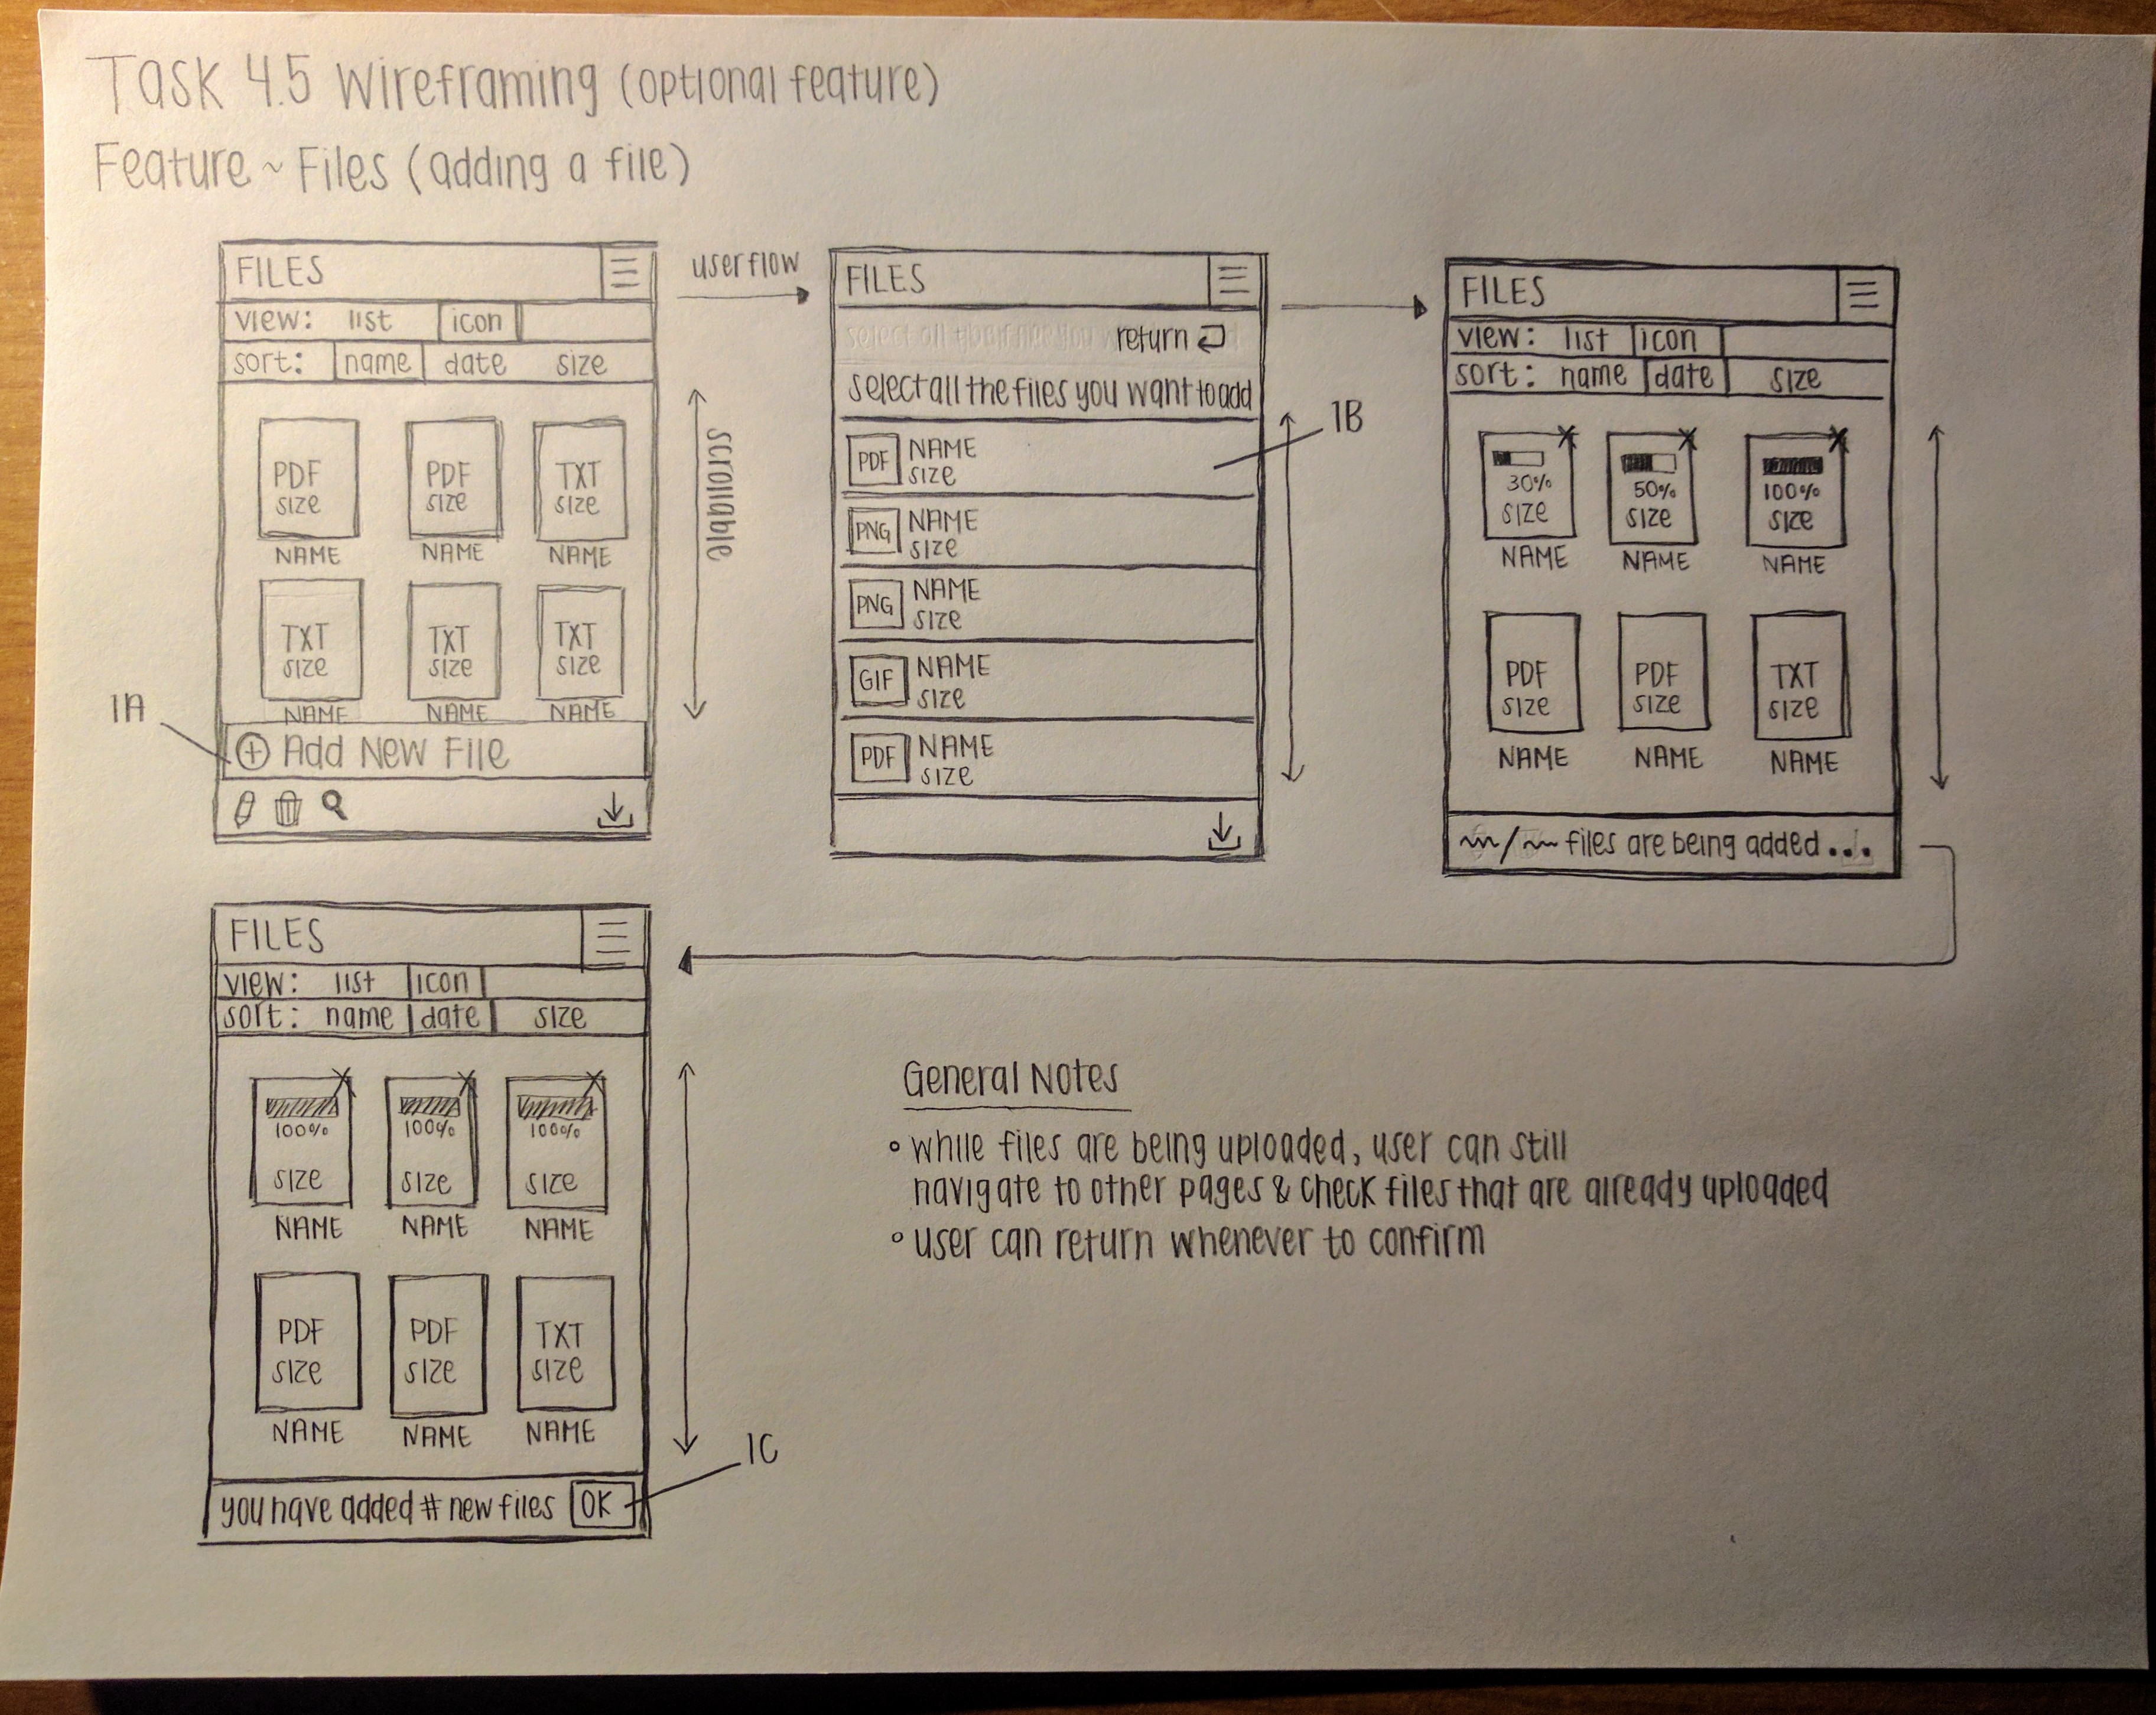 Task 4.5 Wireframing (optional feature)
Feature ~ Files (adding a file)
FILES
view: list icon
sort: name date size
PDF size
PDF size
TXT size
NAME NAME NAME
TXT size
TXT size
TXT size
NAME NAME NAME
1A
+ Add New File
scrollable
userflow
FILES
return
select all the files you want to add
PDF NAME
size
PNG NAME
size
PNG NAME
size
GIF NAME
size
PDF NAME
size
1B
FILES
view: list icon
sort: name date size
30% size
50% size
100% size
NAME NAME NAME
PDF size
PDF size
TXT size
NAME NAME NAME
/ files are being added...
FILES
view: list icon
sort: name date size
100% size
100% size
100% size
NAME NAME NAME
PDF size
PDF size
TXT size
NAME NAME NAME
you have added # new files OK
1C
General Notes
• while files are being uploaded, user can still
navigate to other pages & check files that are already uploaded
• user can return whenever to confirm